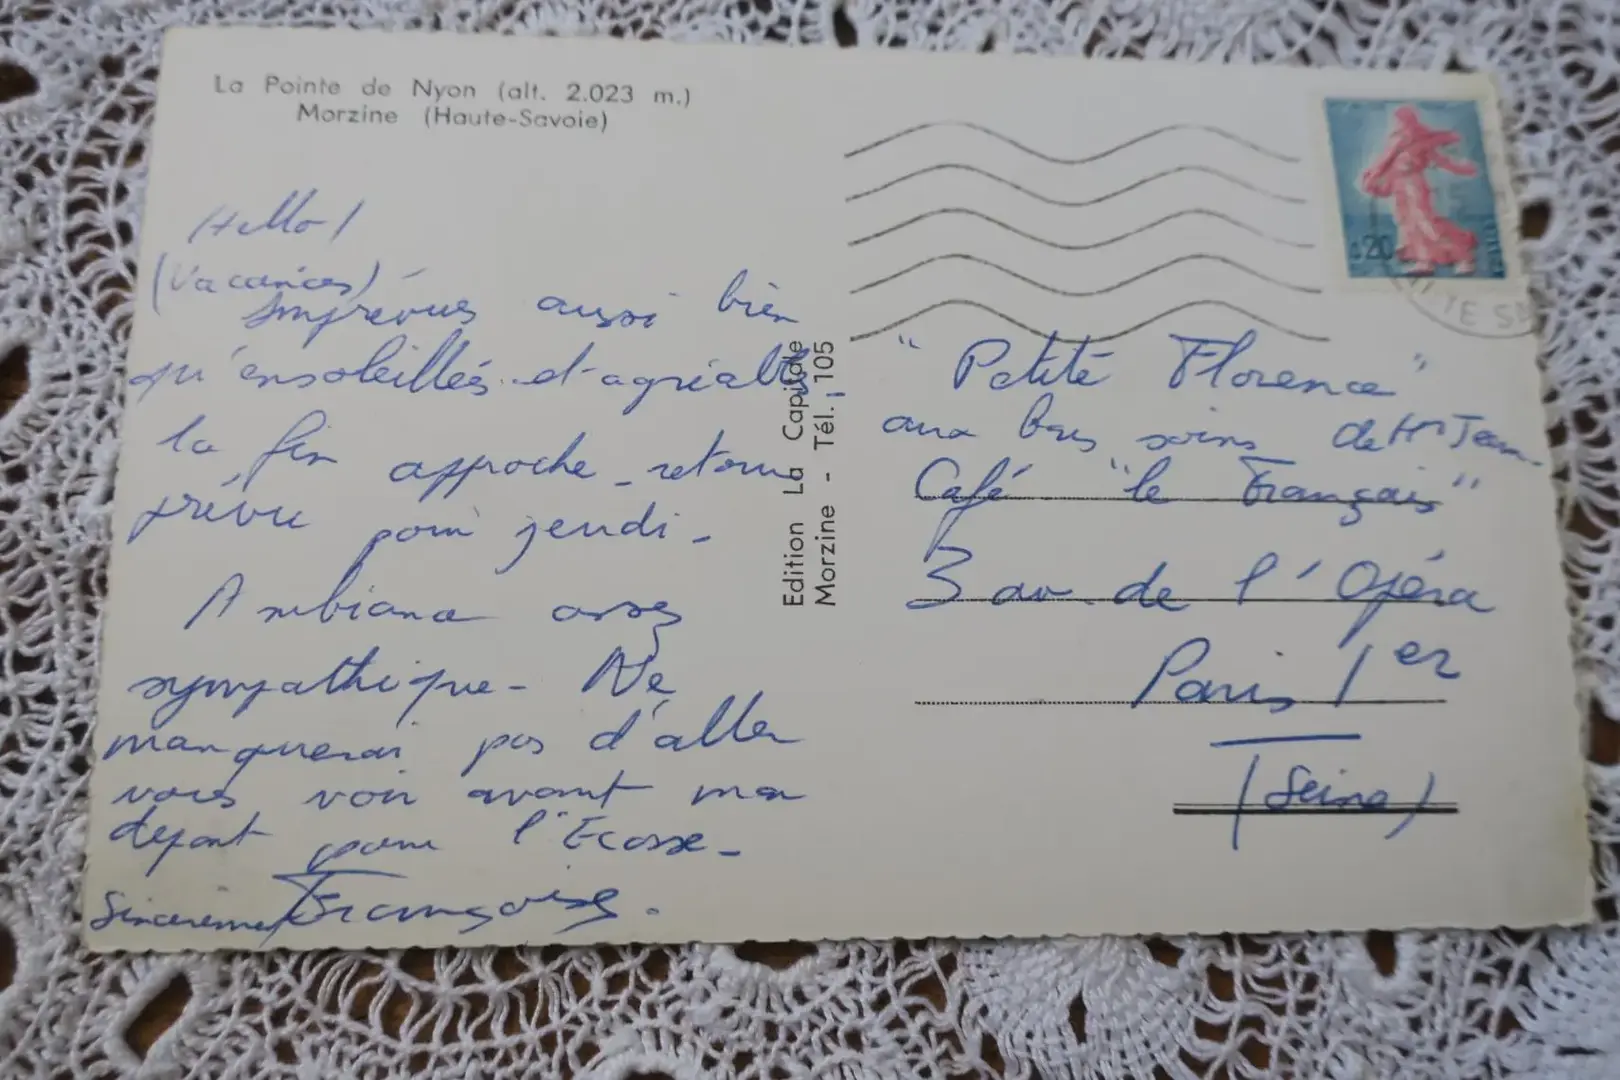 La Pointe de Nyon (alt. 2.023 m.)
Morzine (Haute-Savoie)
Hello !
(Vacances)
Imprévues aussi bien
qu'ensoleillés et agréables
la fin approche - retour
prévu pour jeudi -
Ambiance assez
sympathique - Ne
manquerai pas d'aller
vous voir avant mon
départ pour l'Ecosse -
Sincerement Françoise.
Edition La Capitale
Morzine - Tél. 105
0,20
"Petite Florence"
aux bons soins de Mr Jean
Café "le Français"
3 av. de l'Opéra
Paris 1er
(Seine)